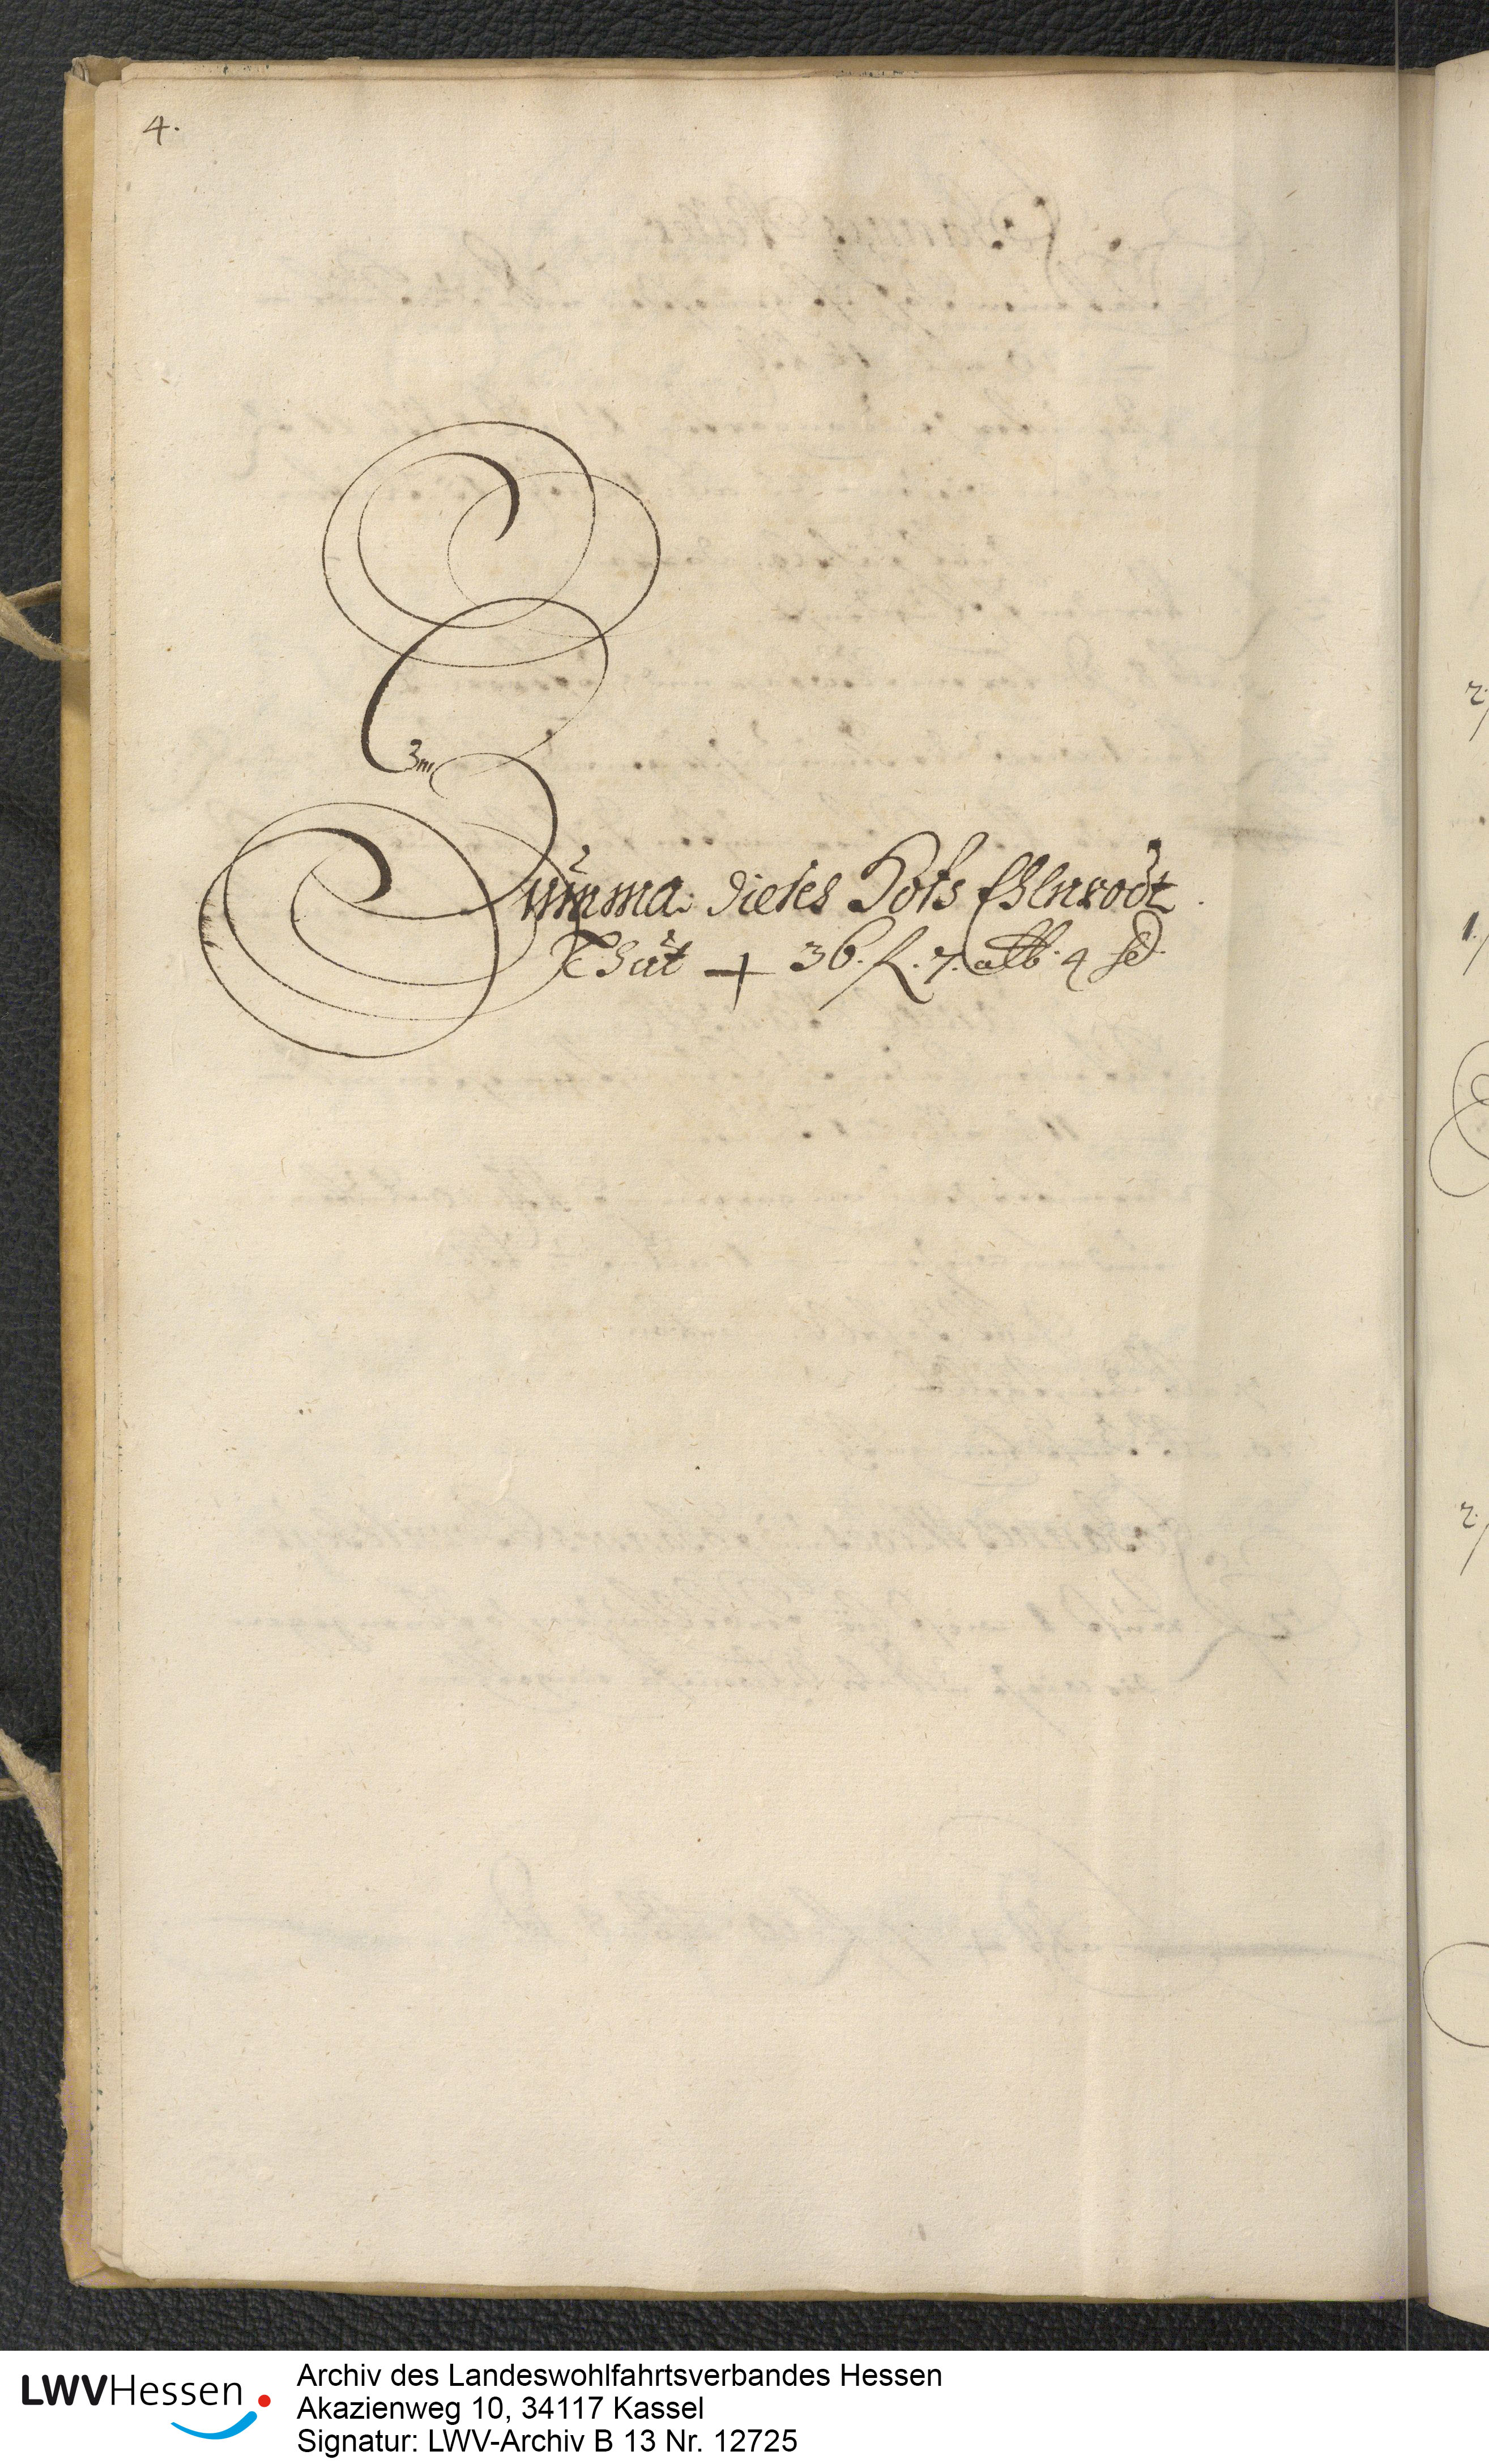 4.
Summa dieses Hofs Eßenrodt
Thut + 36. fl. 7. alb. 4 d.
2.
1.
2.
LWVHessen
Archiv des Landeswohlfahrtsverbandes Hessen
Akazienweg 10, 34117 Kassel
Signatur: LWV-Archiv B 13 Nr. 12725